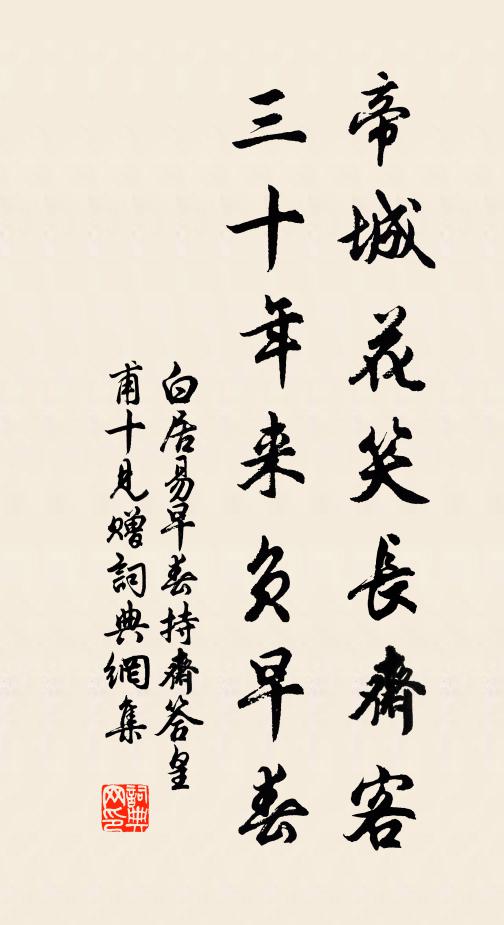 帝城花笑長齋客
三十年来負早春
白居易早春持齋答皇
甫十見贈詞典網集
詞典网印